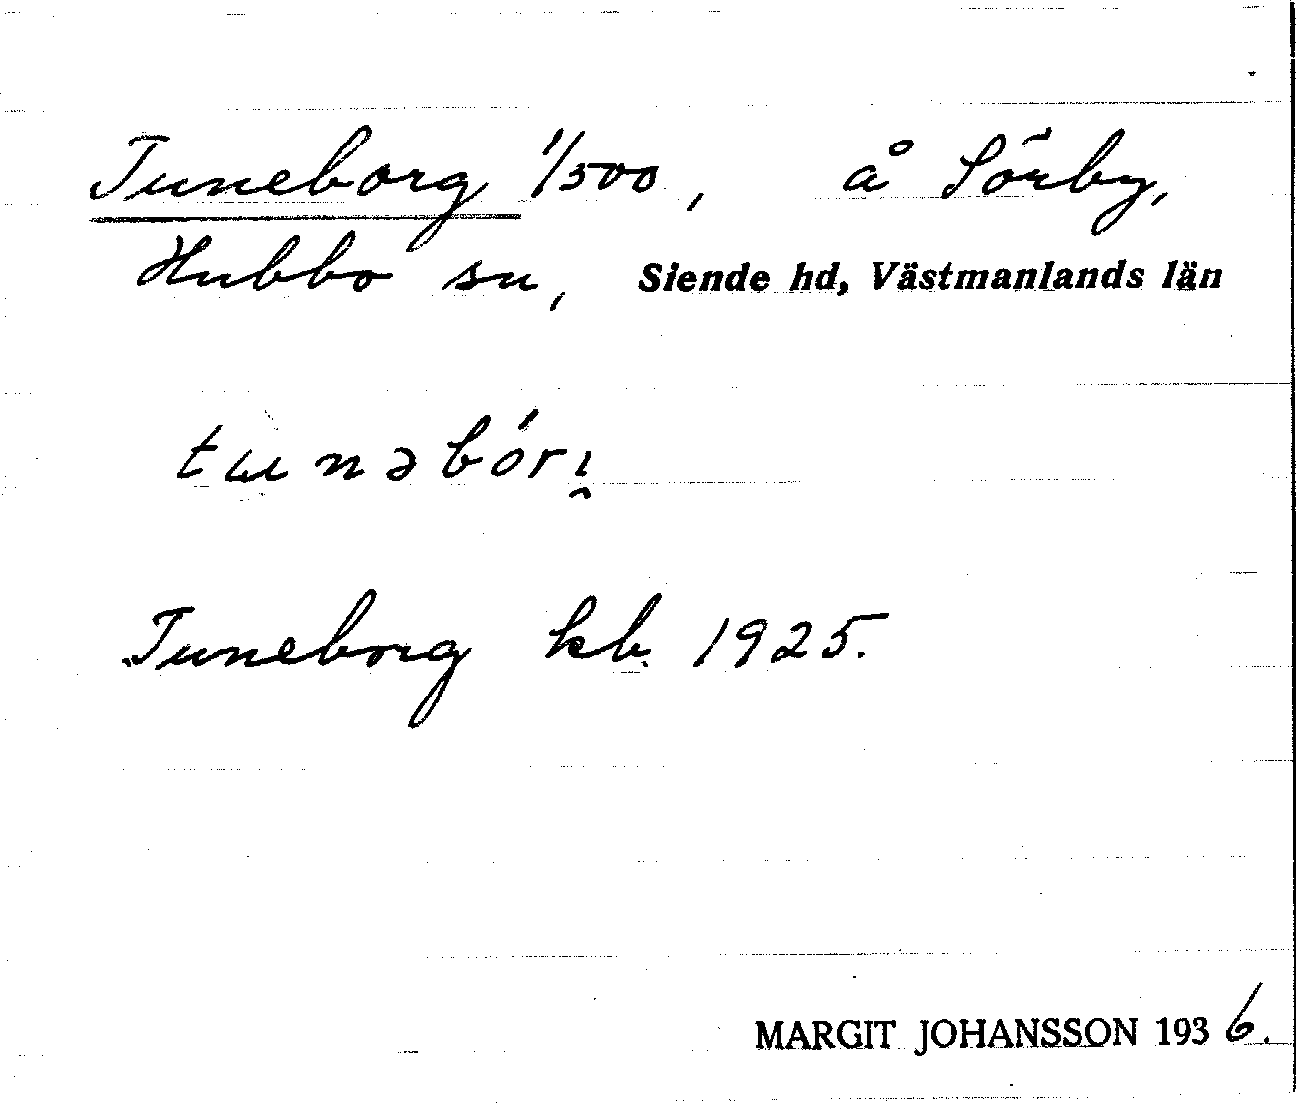 Tuneborg 1/500, å Sörby,
Hubbo sn, Siende hd, Västmanlands län
tunəbórı̯
Tuneborg kb. 1925.
MARGIT JOHANSSON 1936.